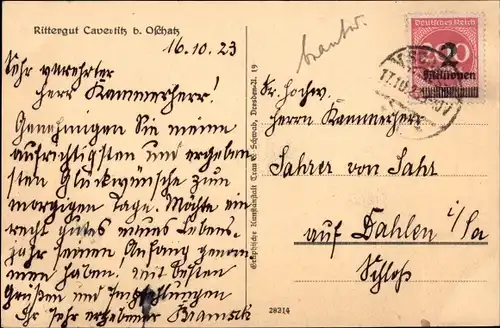 Rittergut Cavertitz b. Oschatz
16.10.23
Sehr verehrter
Herr Kammerherr!
Genehmigen Sie meine
aufrichtigsten und ergeben
sten Glückwünsche zum
morgigen Tage. Möchte ein
recht gutes neues Lebens-
jahr seinen Anfang genom
men haben. Mit besten
Grüßen und Empfehlungen
Ihr sehr ergebener
Graphische Kunstanstalt Trau & Schwab, Dresden-A. 19
beantw.
Deutsches Reich
2
Millionen
Sr. Hochw.
Herrn Kammerherr
Sahrer von Sahr
auf Dahlen i/Sa
Schloß
28214